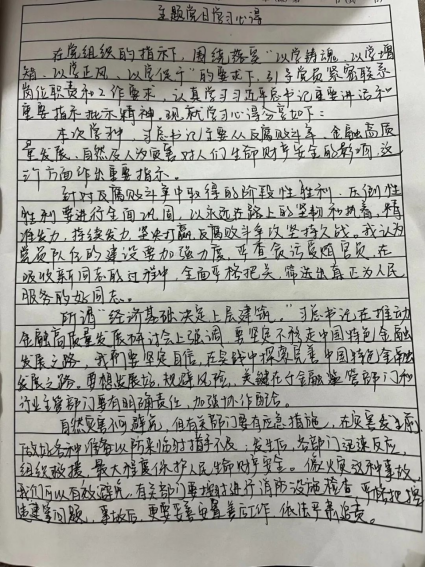 主题党日学习心得
在党组织的指示下，围绕落实“以学铸魂、以学增
智、以学正风、以学促干”的要求下，引导党员紧密联系
岗位职责和工作要求，认真学习习近平总书记重要讲话和
重要指示批示精神，现就学习心得分享如下：
本次学习中，习总书记主要从反腐败斗争、金融高质
量发展、自然及人为灾害对人们生命财产安全的影响，这
三个方面作出重要指示。
针对反腐败斗争中取得的阶段性胜利、压倒性
胜利要进行全面巩固，以永远在路上的坚韧和执着，精
准发力，持续发力，坚决打赢反腐败斗争攻坚持久战。我认为
党员队伍的建设要加强力度，严查贪污受贿官员，在
吸收新同志的过程中，全面严格把关，筛选出真正为人民
服务的好同志。
所谓“经济基础决定上层建筑。”习总书记在推动
金融高质量发展研讨会上强调，要坚定不移走中国特色金融
发展之路，我们要坚定自信，在实践中探索完善中国特色金融
发展之路。要想发展好，规避风险，关键在于金融监管部门和
行业主管部门要有明确责任，加强协作配合。
自然灾害不可避免，但有关部门要有应急措施，在灾害发生前
做好各种准备以防来临时措手不及；发生后，各部门迅速反应，
组织救援，最大程度保护人民生命财产安全。像火灾这种事故，
我们可以有效避免，有关部门要按时进行消防设施检查，严格把握
违建等问题，事故后，更要妥善安置善后工作，依法严肃追责。